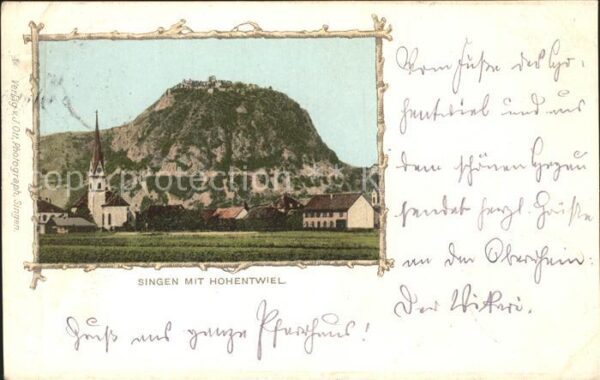 Verlag v. J. Ott, Photograph, Singen.
SINGEN MIT HOHENTWIEL.
Vom Fuße des Ho-
hentwiel und aus
dem schönen Hegau
sendet herzl. Grüße
an den Oberrhein:
Der Vikari.
Gruß ans ganze Pfarrhaus!
copyright-protection